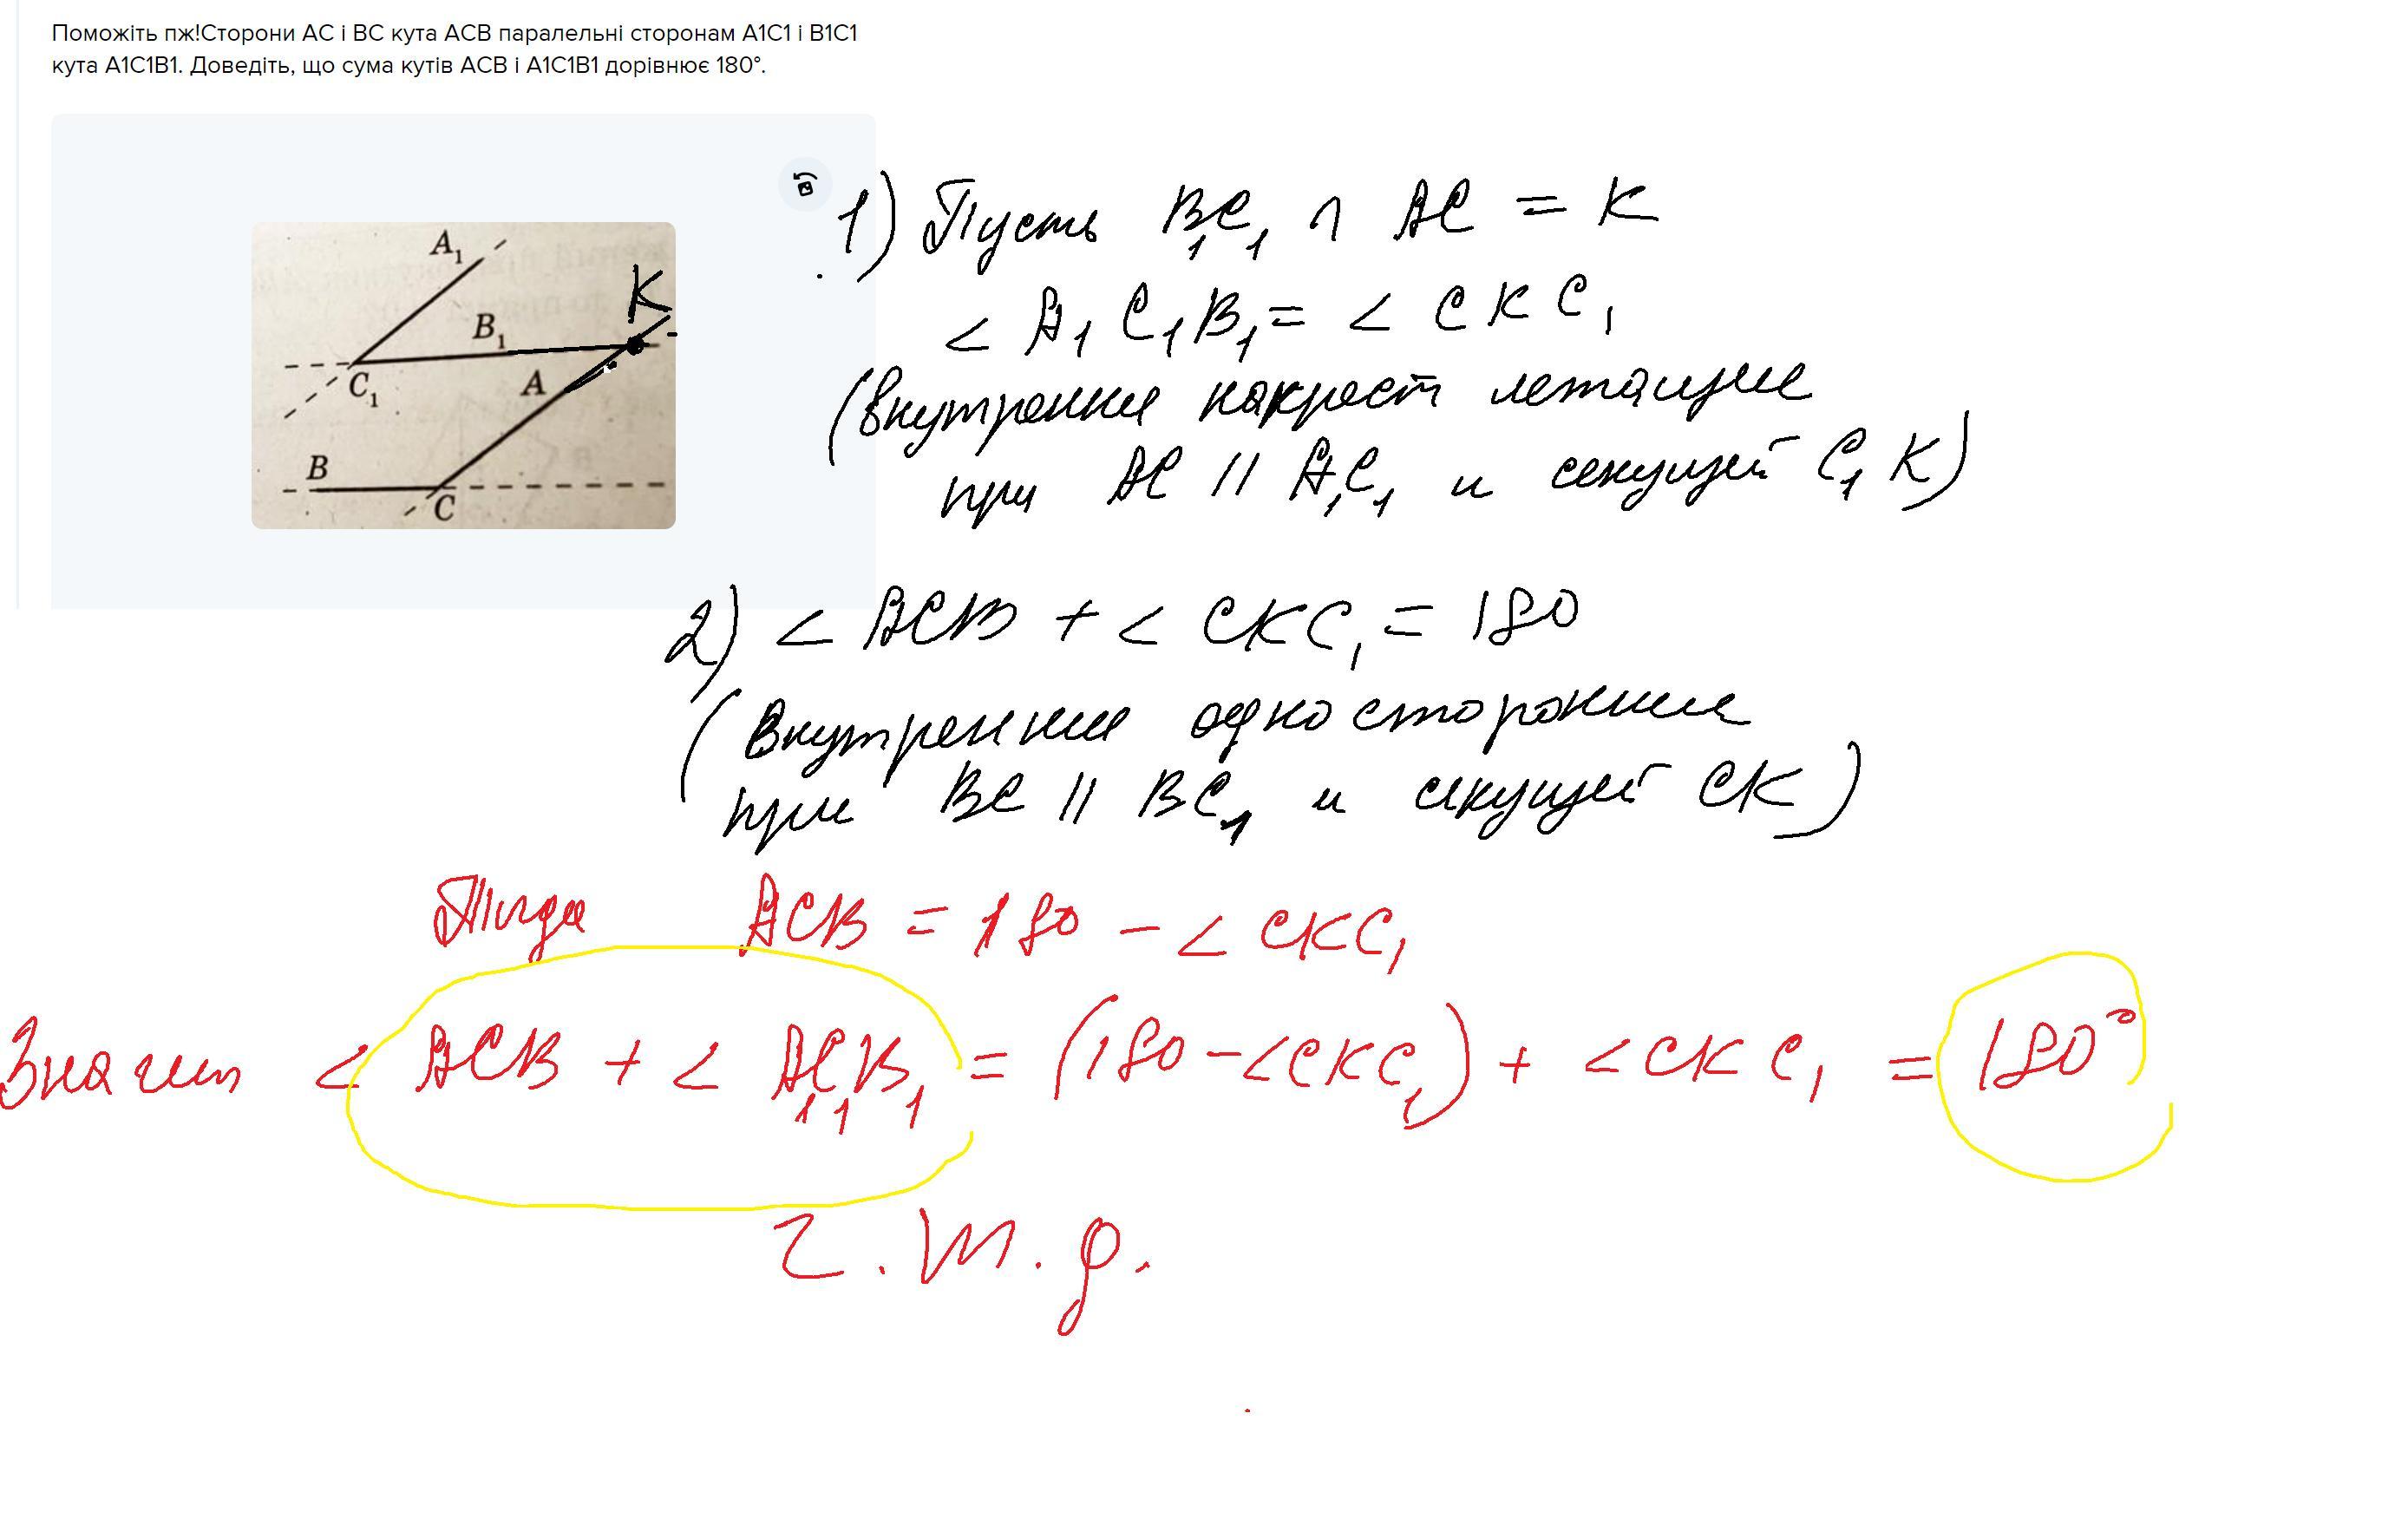 Поможіть пж!Сторони АС і ВС кута АСВ паралельні сторонам А1С1 і В1С1
кута А1С1В1. Доведіть, що сума кутів АСВ і А1С1В1 дорівнює 180°.
A₁
K
B₁
C₁
A
B
C
1) Пусть B₁C₁ ∩ AC = K
< A₁C₁B₁ = < CKC₁
(внутренние накрест лежащие
при AC || A₁C₁ и секущей C₁K)
2) < ACB + < CKC₁ = 180
(Внутренние односторонние
при BC || BC₁ и секущей CK)
Тогда ACB = 180 - < CKC₁
Значит < ACB + < A₁C₁B₁ = (180 - <CKC₁) + <CKC₁ = 180°
ч.т.д.